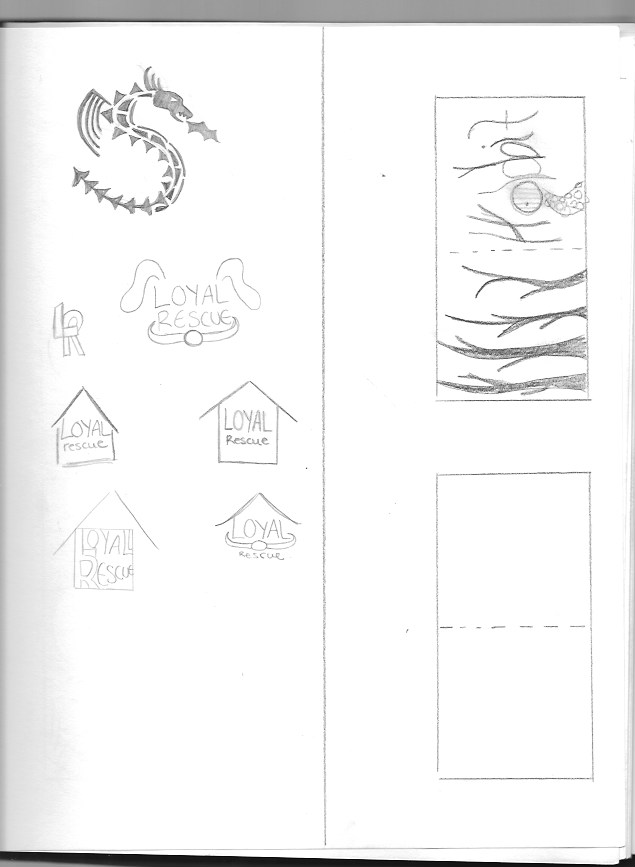 LOYAL
RESCUE
LR
LOYAL
rescue
LOYAL
Rescue
LOYAL
RESCUE
LOYAL
RESCUE
Hobbit